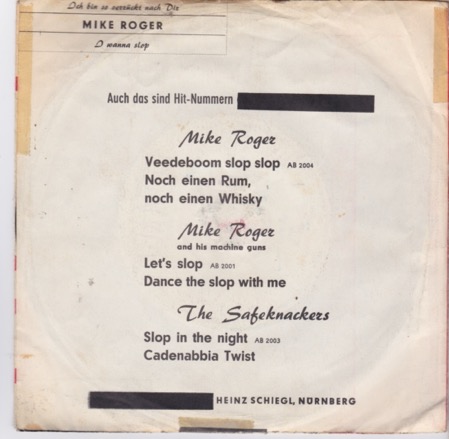 Ich bin so verrückt nach Dir
MIKE ROGER
I wanna slop
Auch das sind Hit-Nummern
Mike Roger
Veedeboom slop slop AB 2004
Noch einen Rum,
noch einen Whisky
Mike Roger
and his machine guns
Let's slop AB 2001
Dance the slop with me
The Safeknackers
Slop in the night AB 2003
Cadenabbia Twist
HEINZ SCHIEGL, NÜRNBERG